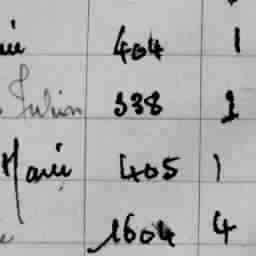 404 1
Julien 338 1
Marie 405 1
1604 4